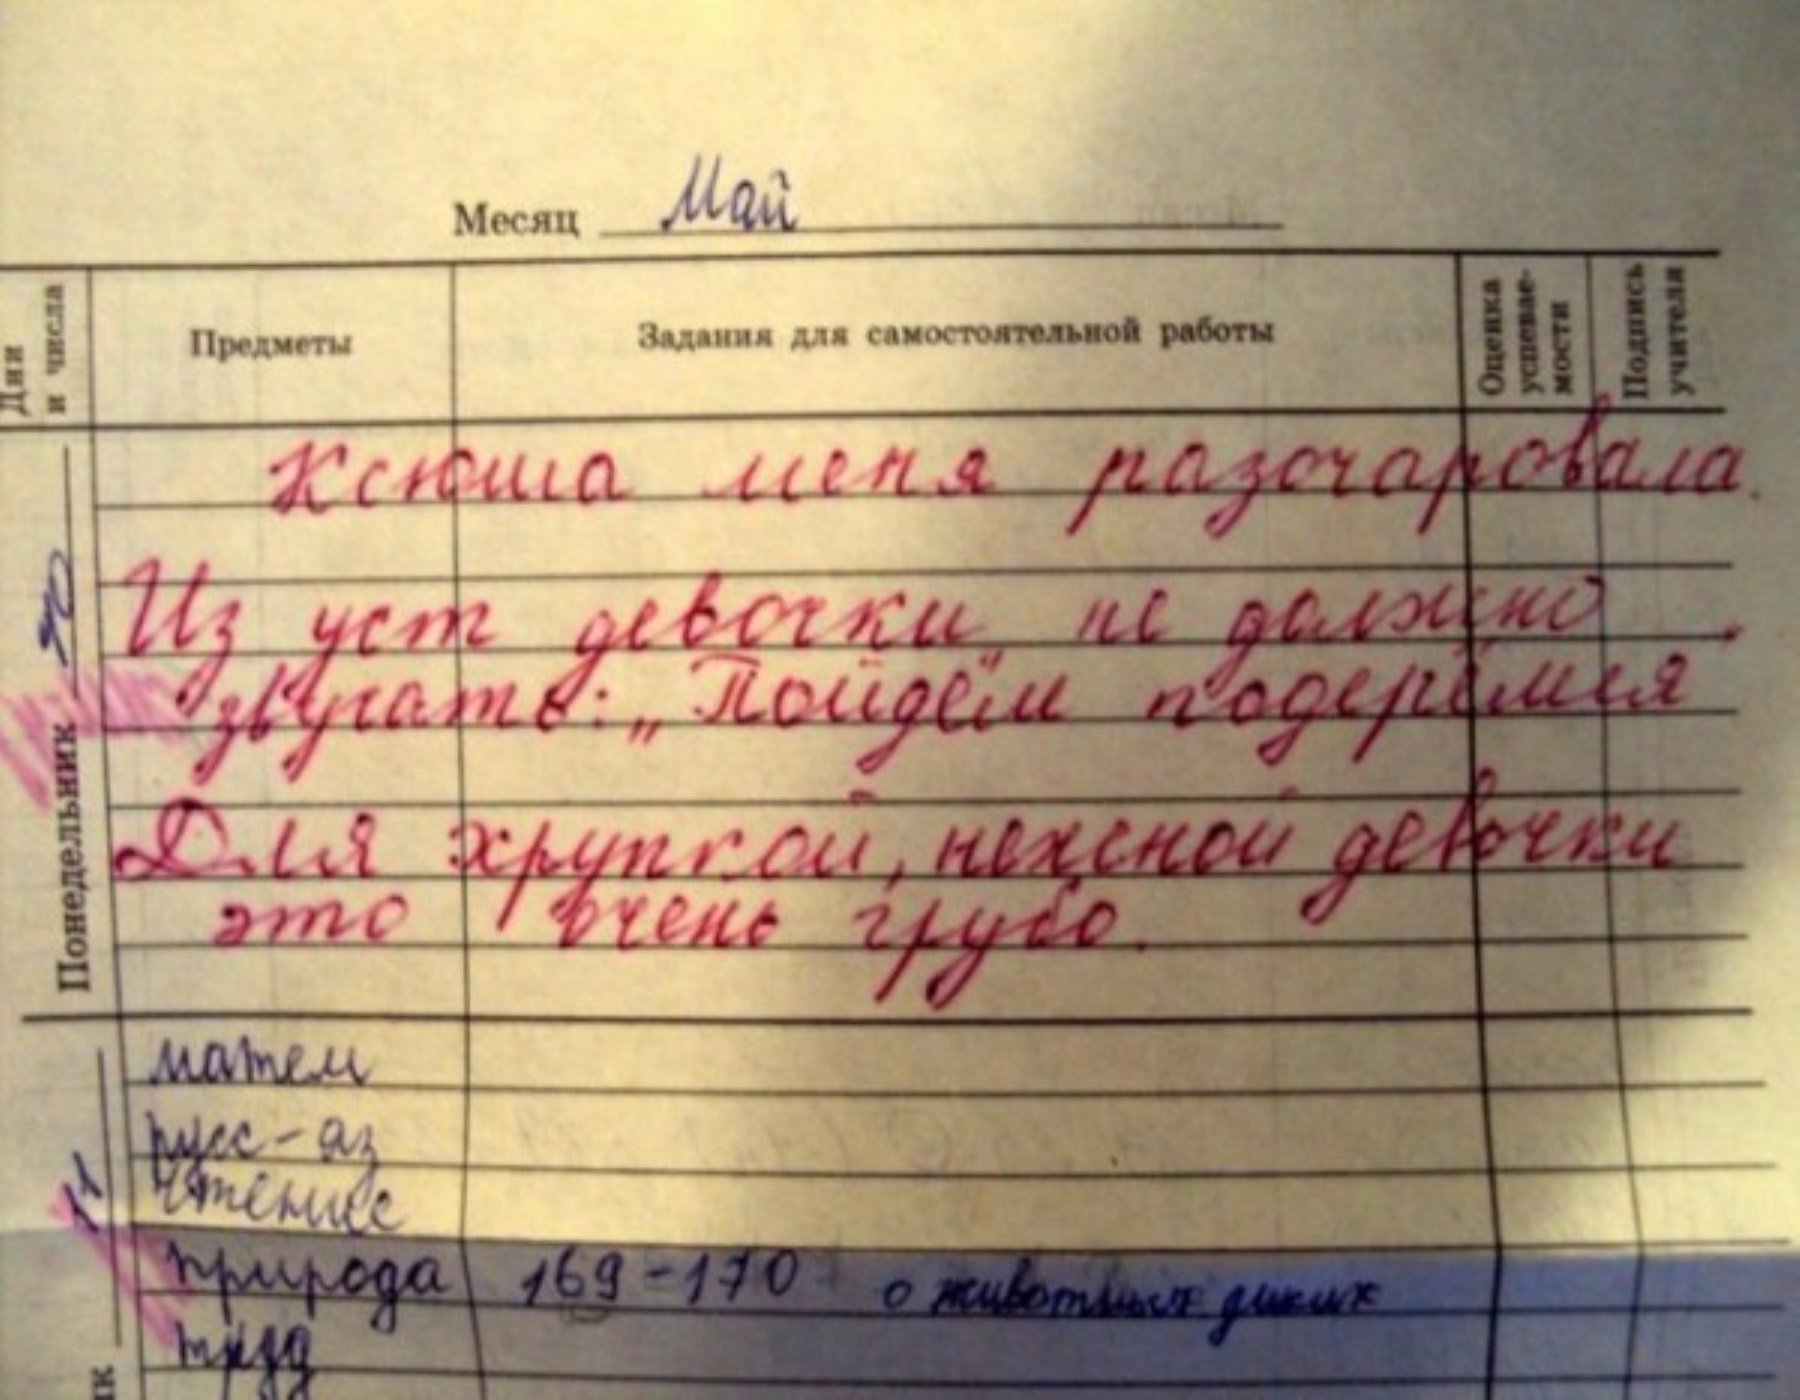 Месяц Май
Дни и числа
Предметы
Задания для самостоятельной работы
Оценка успевае-
мости
Подпись учителя
Понедельник 10
Ксюша меня разочаровала.
Из уст девочки не должно
звучать: „Пойдём подерёмся".
Для хрупкой, нежной девочки
это очень грубо.
11
матем
русс-яз
чтение
природа 169-170 о животных диких
труд